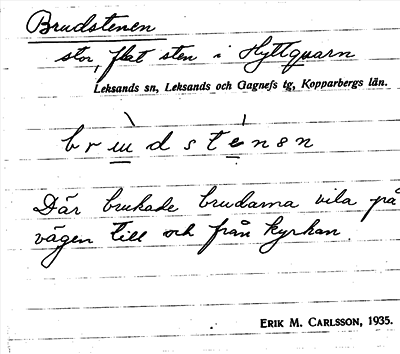 Brudstenen
stor, flat sten i Hyttquarn
Leksands sn, Leksands och Gagnefs tg, Kopparbergs län.
b r u d s t e n s n
Där brukade brudarna vila på
vägen till och från kyrkan.
ERIK M. CARLSSON, 1935.